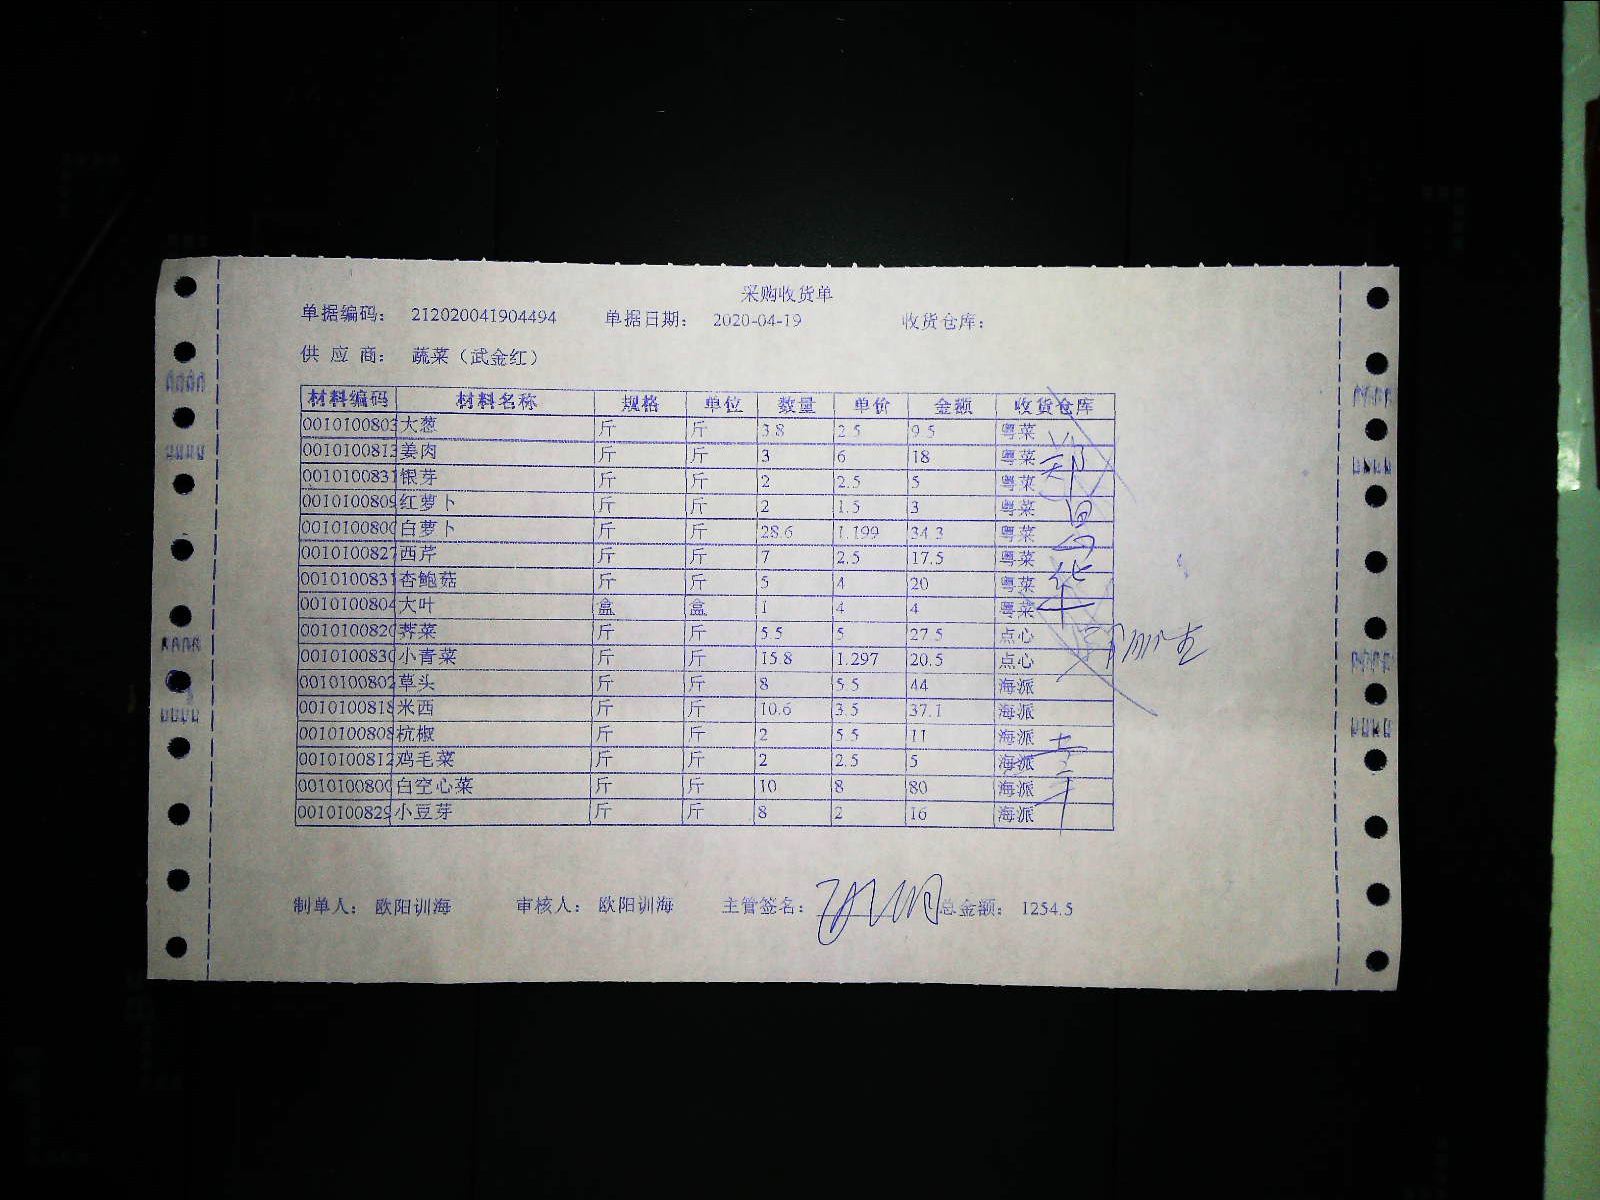 采购收货单
单据编码： 212020041904494 单据日期： 2020-04-19 收货仓库：
供 应 商： 蔬菜（武金红）
材料编码 材料名称 规格 单位 数量 单价 金额 收货仓库
0010100803 大葱 斤 斤 3.8 2.5 9.5 粤菜
0010100813 姜肉 斤 斤 3 6 18 粤菜
0010100831 银芽 斤 斤 2 2.5 5 粤菜
0010100809 红萝卜 斤 斤 2 1.5 3 粤菜
0010100800 白萝卜 斤 斤 28.6 1.199 34.3 粤菜
0010100827 西芹 斤 斤 7 2.5 17.5 粤菜
0010100831 杏鲍菇 斤 斤 5 4 20 粤菜
0010100804 大叶 盒 盒 1 4 4 粤菜
0010100820 荠菜 斤 斤 5.5 5 27.5 点心
0010100830 小青菜 斤 斤 15.8 1.297 20.5 点心
0010100802 草头 斤 斤 8 5.5 44 海派
0010100818 米西 斤 斤 10.6 3.5 37.1 海派
0010100808 杭椒 斤 斤 2 5.5 11 海派
0010100812 鸡毛菜 斤 斤 2 2.5 5 海派
0010100800 白空心菜 斤 斤 10 8 80 海派
0010100829 小豆芽 斤 斤 8 2 16 海派
制单人： 欧阳训海 审核人： 欧阳训海 主管签名： 总金额： 1254.5